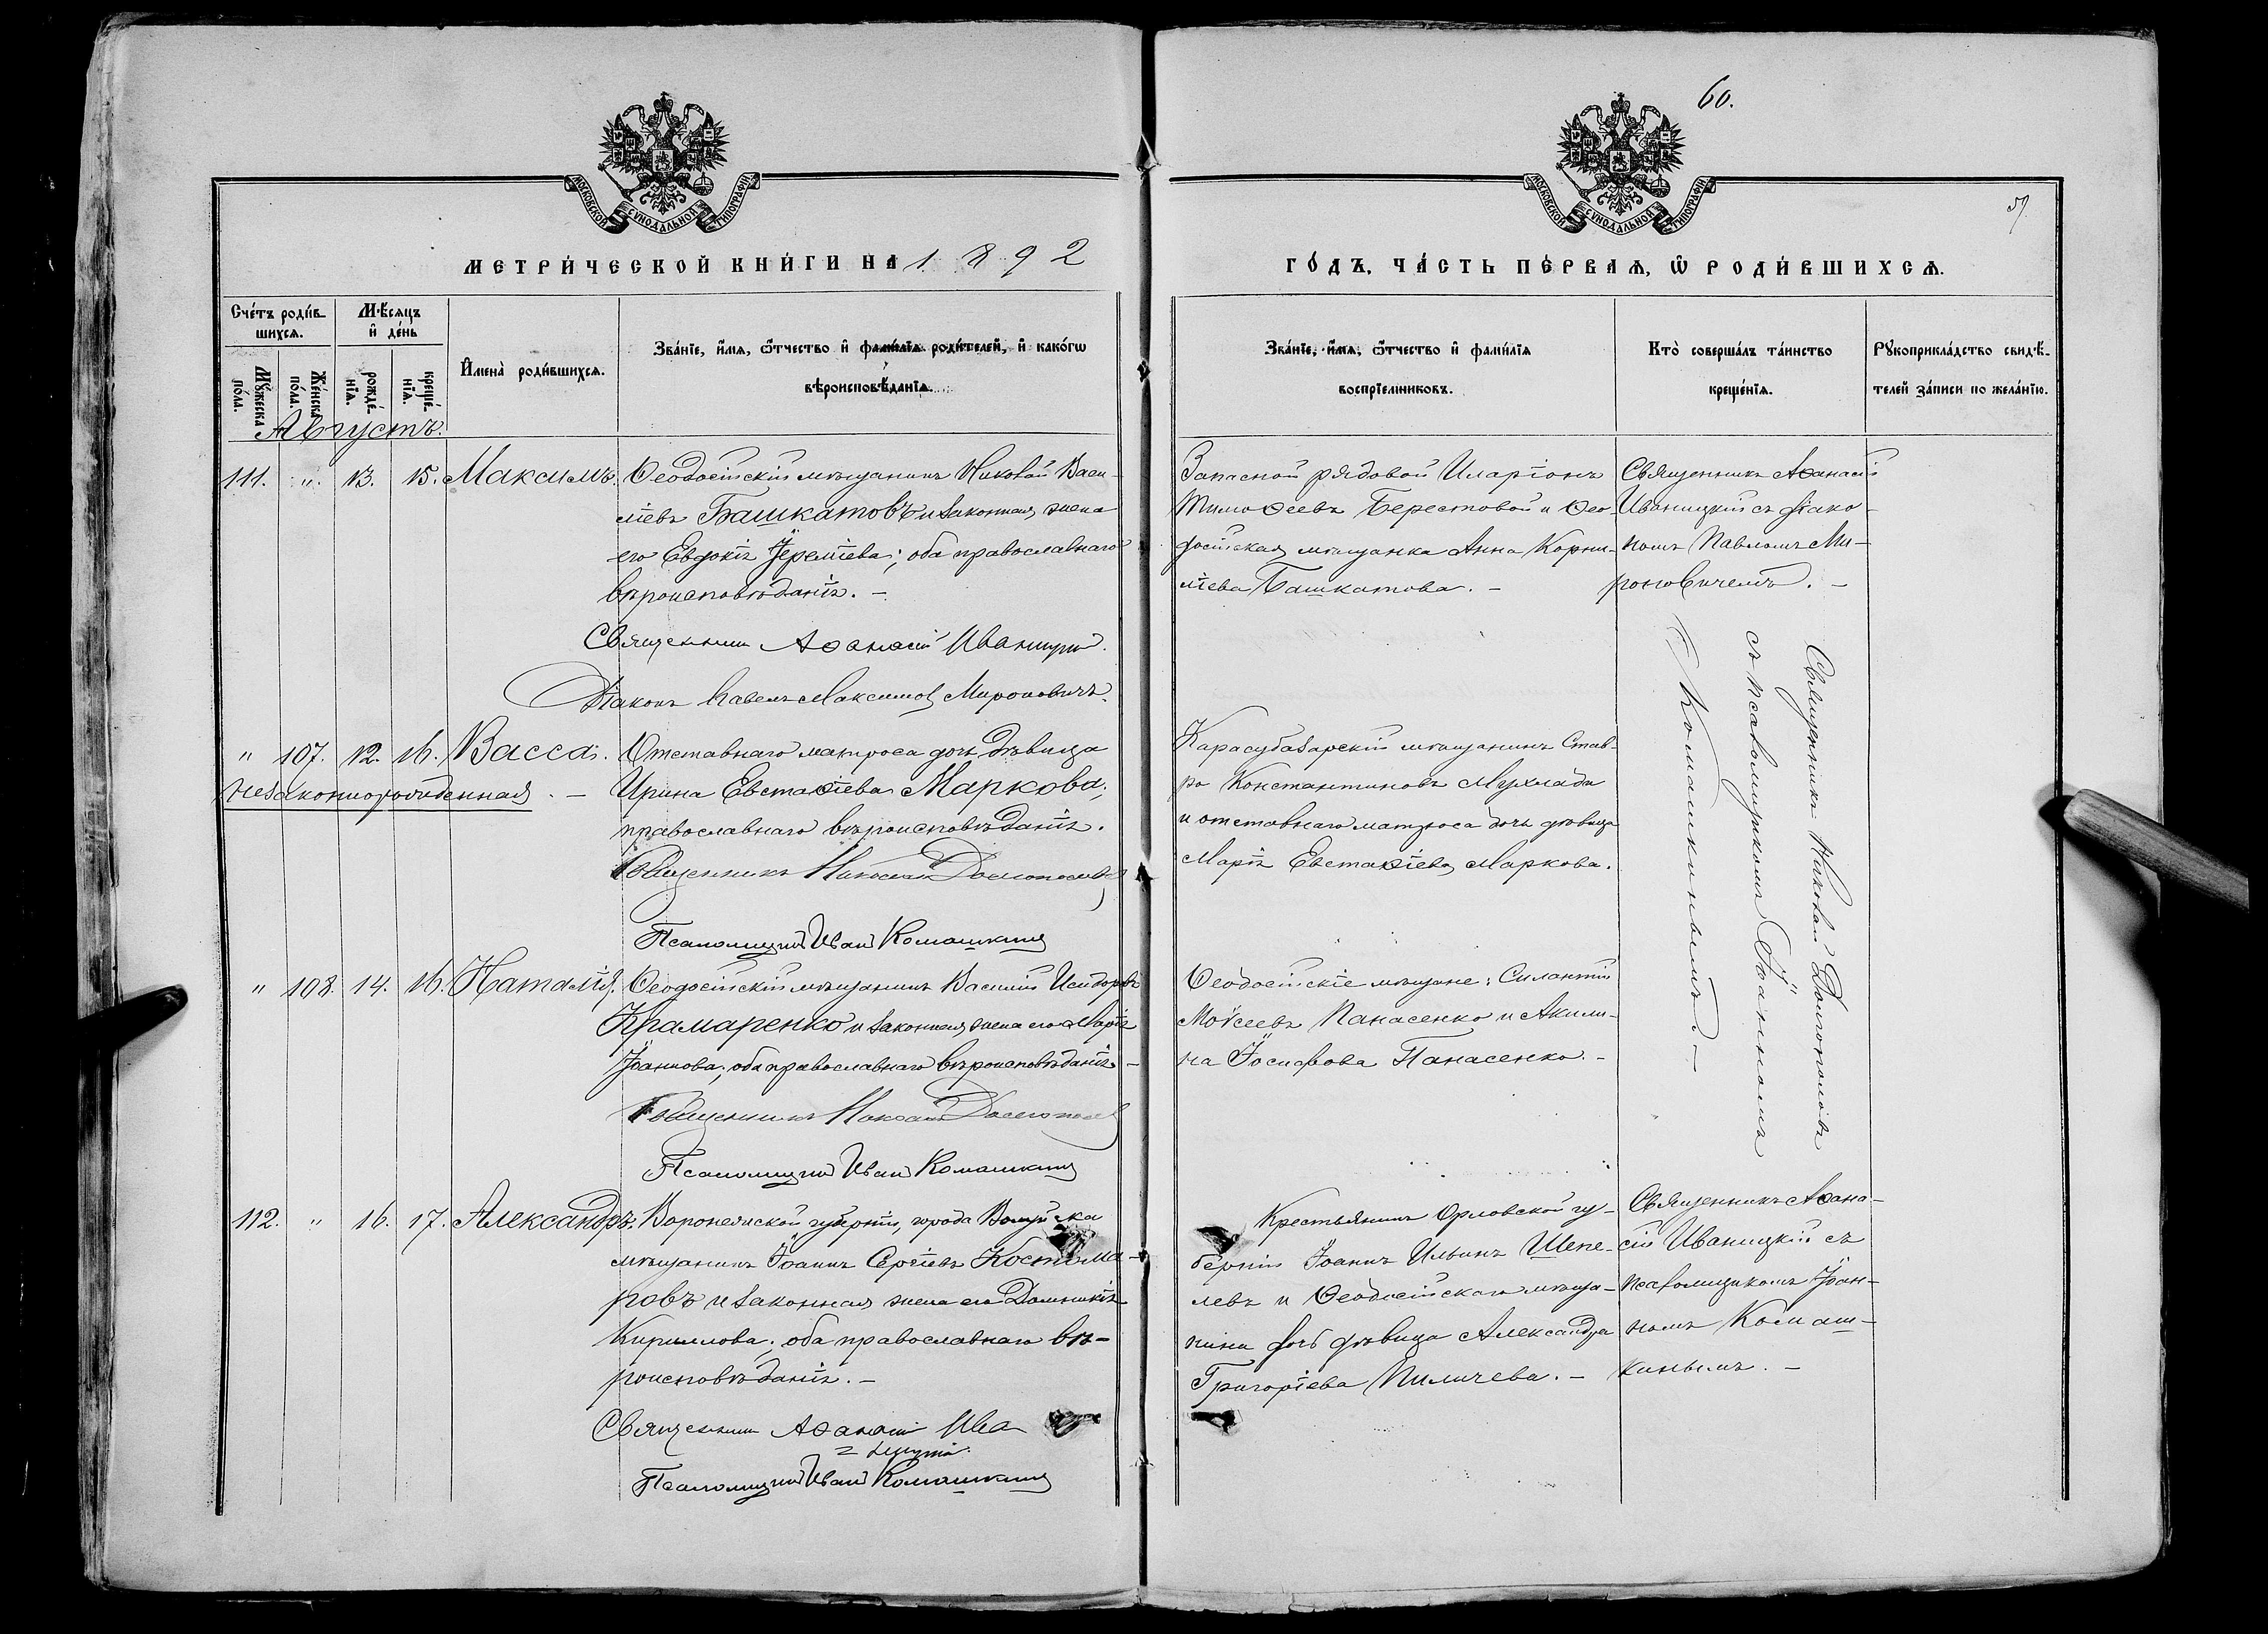 60.
59
МОСКОВСКОЙ СѴНОДАЛЬНОЙ ТИПОГРАФІИ
МОСКОВСКОЙ СѴНОДАЛЬНОЙ ТИПОГРАФІИ
МЕТРИ́ЧЕСКОЙ КНИ́ГИ НА 1892
ГО́ДЪ, ЧА́СТЬ ПЕ́РВАѦ, Ѿ РОДИ́ВШИХСѦ.
Сче́тъ роди́в-
шихсѧ.
Мꙋ́жеска по́ла.
Же́нска по́ла.
Мѣ́сѧцъ
и҆ де́нь
рожде́-
нїѧ.
креще́-
нїѧ.
И҆мена̀ роди́вшихсѧ.
Зва́нїе, и҆́мѧ, ѻ҆́тчество и҆ фами́лїѧ роди́телей, и҆ како́гѡ
вѣроисповѣ́данїѧ.
Зва́нїе, и҆́мѧ, ѻ҆́тчество и҆ фами́лїѧ
воспрїе́мниковъ.
Кто̀ соверша́лъ та́инство
креще́нїѧ.
Рꙋкоприкла́дство свидѣ́-
телей за́писи по жела́нїю.
Августъ.
111. " 13. 15. Максимъ. Ѳеодосійскій мѣщанинъ Николай Васи-
ліевъ Башкатовъ и законная жена
его Евдокія Іереміева; оба православнаго
вѣроисповѣданія. –
Священникъ Аѳанасій Иваницкій.
Діаконъ Павелъ Максимовъ Мироновичъ.
Запасной рядовой Иларіонъ
Тимоѳеевъ Берестовой и Ѳео-
досійская мѣщанка Анна Корни-
ліева Башкатова. –
Священникъ Аѳанасій
Иваницкій съ діако-
номъ Павломъ Ми-
роновичемъ. –
" 107. 12. 16. Васса. Отставнаго матроса дочь дѣвица
незаконнорожденная. – Ирина Евстаѳіева Маркова;
православнаго вѣроисповѣданія.
Священникъ Николай Долгополовъ
Псаломщикъ Иван Комашкинъ
Карасубазарскій мѣщанинъ Став-
ро Константиновъ Мухлади
и отставнаго матроса дочь дѣвица
Марія Евстаѳіева Маркова.
Священникъ Николай Долгополовъ
съ псаломщикомъ Іоанномъ
Комашкинымъ. –
" 108. 14. 16. Наталія. Ѳеодосійскій мѣщанинъ Василій Исидоровъ
Крамаренко и законная жена его Марія
Іоаннова; оба православнаго вѣроисповѣданія. –
Священникъ Николай Долгополовъ
Псаломщикъ Иван Комашкинъ
Ѳеодосійскіе мѣщане: Силантій
Моѵсеевъ Панасенко и Акили-
на Іосифова Панасенко. –
112. " 16. 17. Александръ. Воронежской губерніи, города Валуйска
мѣщанинъ Іоаннъ Сергіевъ Костома-
ровъ и законная жена его Домникія
Кириллова; оба православнаго вѣ-
роисповѣданія. –
Священникъ Аѳанасій Ива
= ницкій.
Псаломщикъ Иван Комашкинъ
Крестьянинъ Орловской гу-
берніи Іоаннъ Ильинъ Шепе-
левъ и Ѳеодосійскаго мѣща-
нина дочь дѣвица Александра
Григоріева Пиличева. –
Священникъ Аѳана-
сій Иваницкій съ
псаломщикомъ Іоан-
номъ Комаш-
кинымъ. –